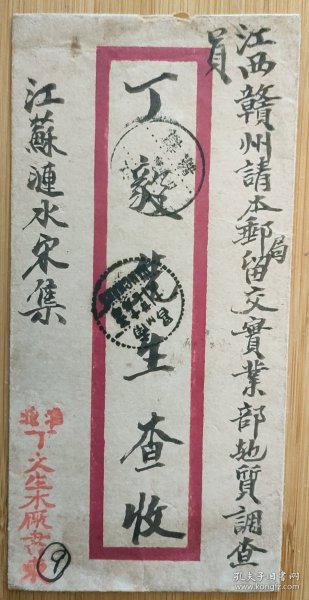 江西贛州請本郵局留交實業部地質調查
員
丁毅先生查收
江蘇漣水宋集
丁文生木廠書柬
9
孔夫子旧书网